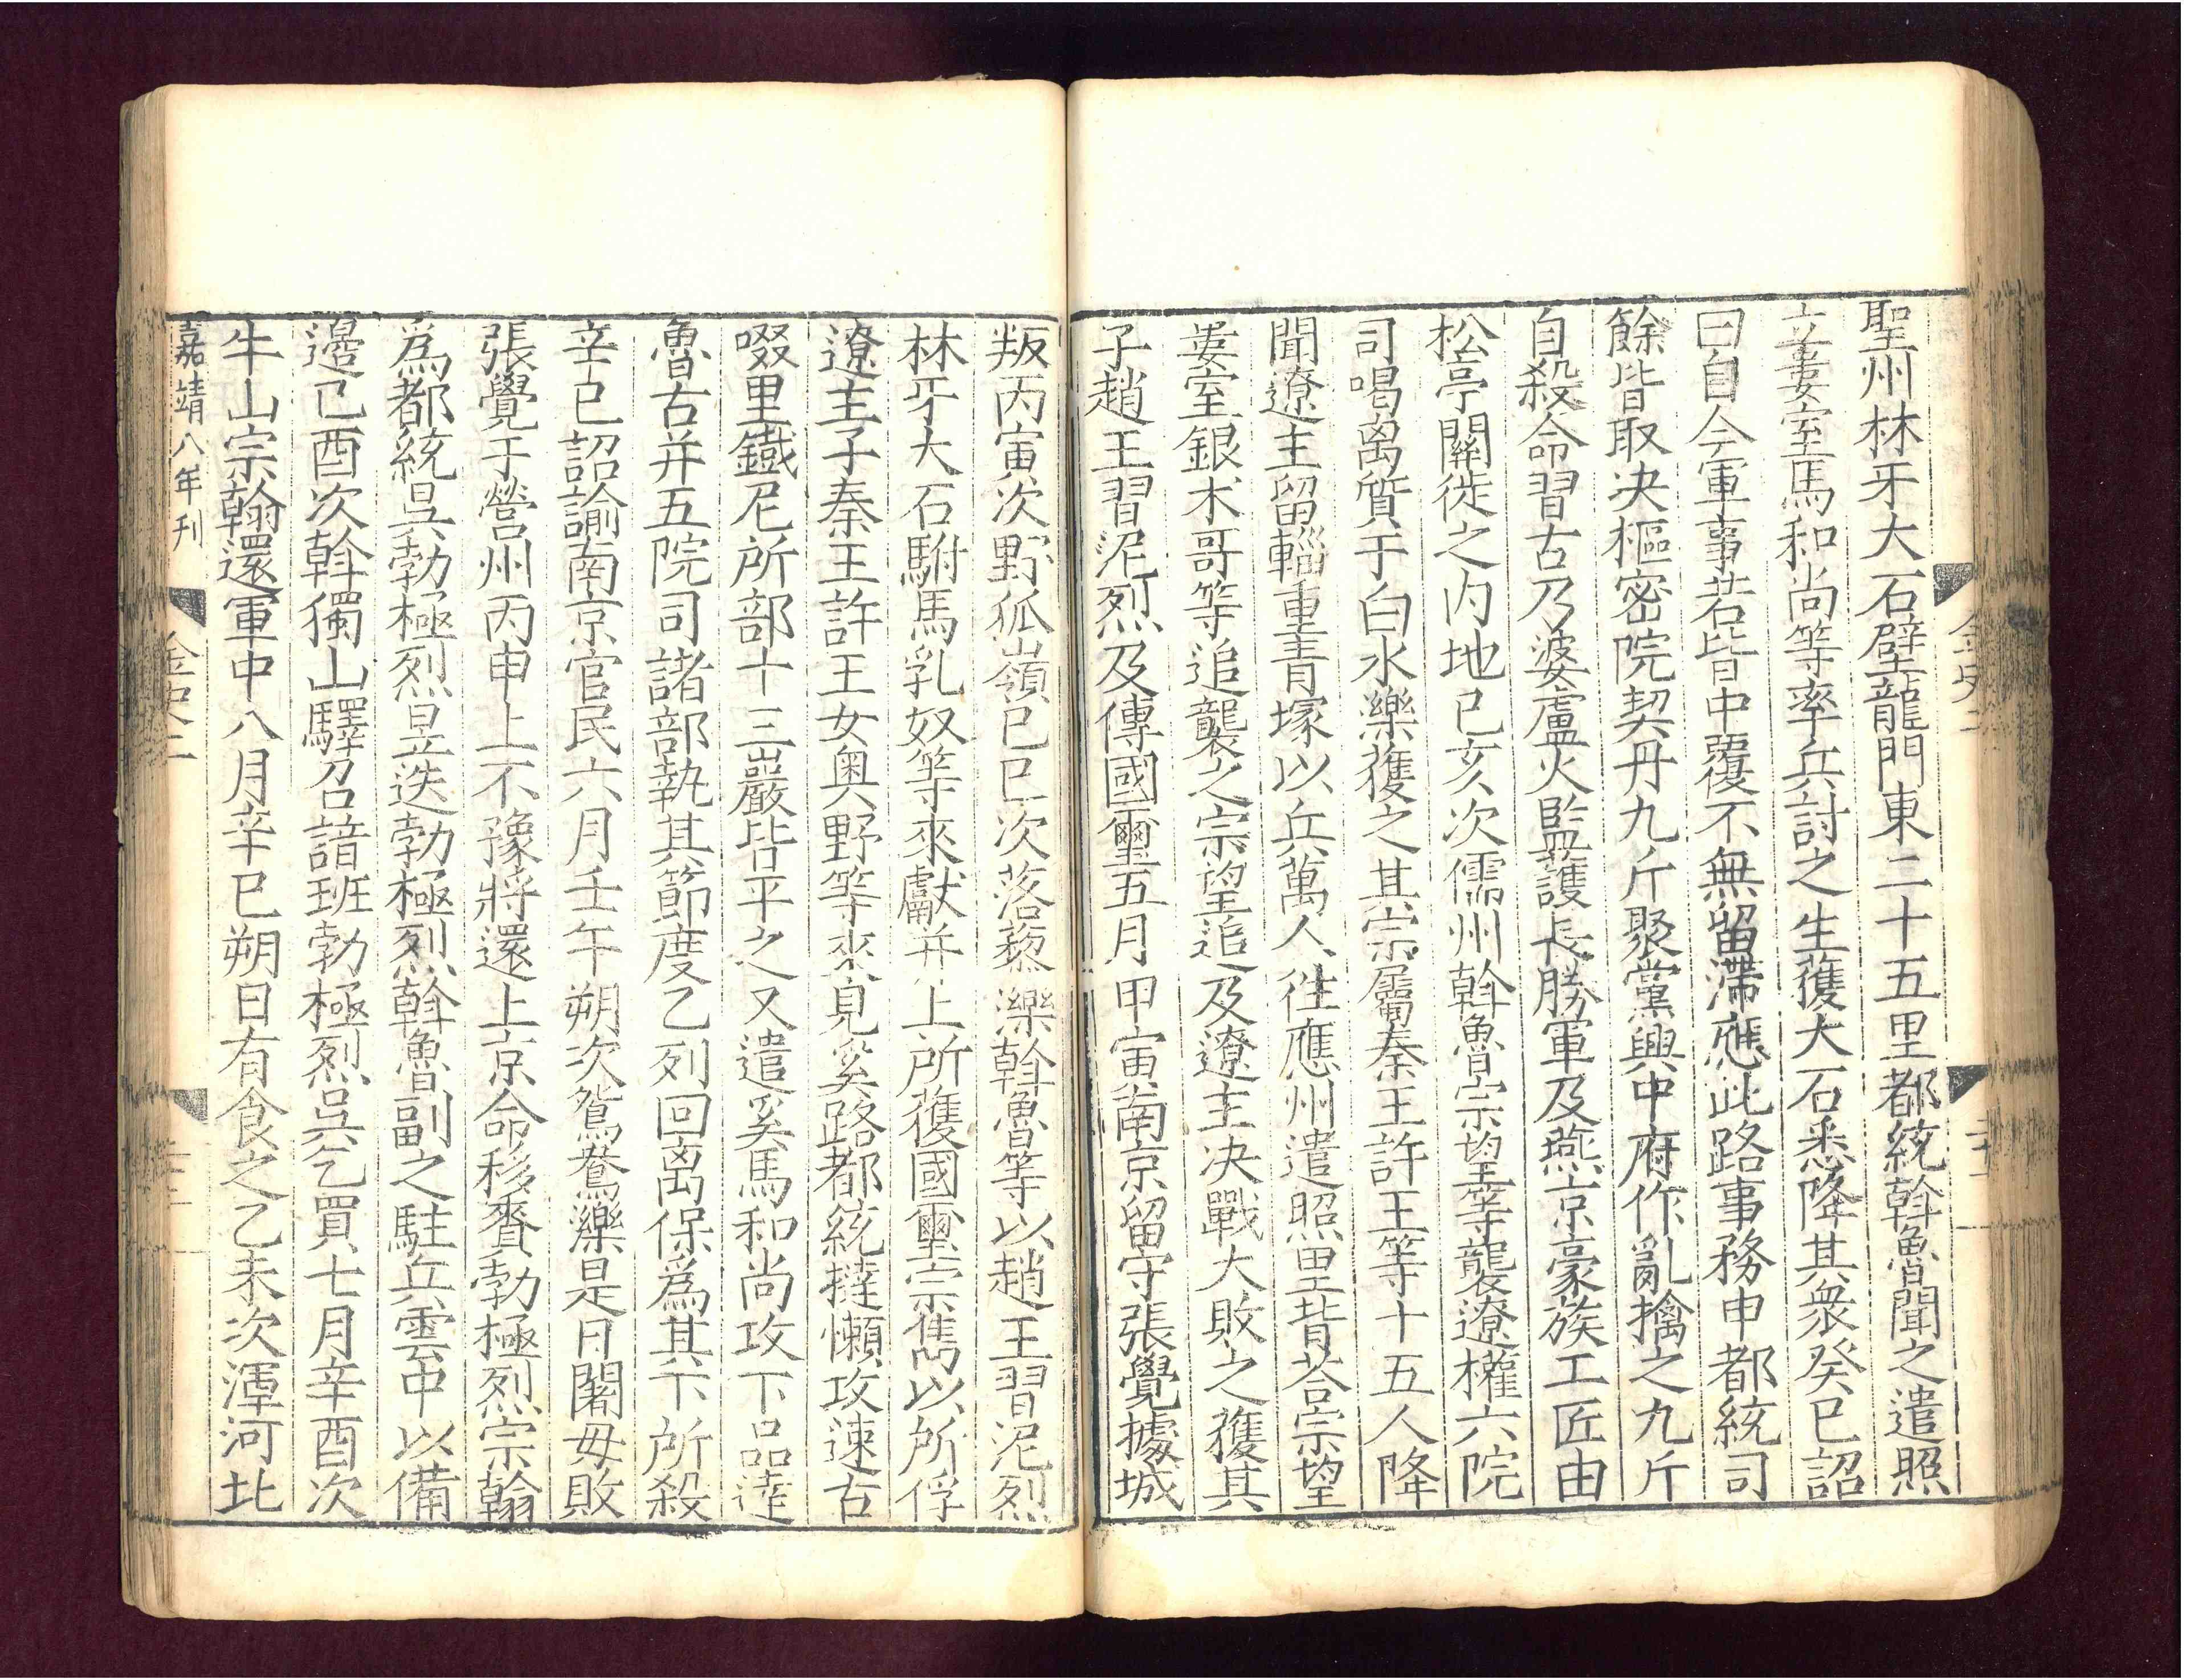 聖州林牙大石壁龍門東二十五里都統斡魯聞之遣照
立婁室馬和尚等率兵討之生獲大石悉降其衆癸巳詔
曰自今軍事若皆中覆不無留滯應此路事務申都統司
餘皆取决樞密院契丹九斤聚黨興中府作亂擒之九斤
自殺命習古乃婆盧火監護長勝軍及燕京豪族工匠由
松亭關徙之内地己亥次儒州斡魯宗望等襲遼權六院
司喝离質于白水濼獲之其宗屬秦王許王等十五人降
聞遼主留輜重青塚以兵萬人往應州遣照里背荅宗望
婁室銀术哥等追襲之宗望追及遼主决戰大敗之獲其
子趙王習泥烈及傳國璽五月甲寅南京留守張覺據城
叛丙寅次野狐嶺己巳次落藜濼斡魯等以趙王習泥烈
林牙大石駙馬乳奴等來獻并上所獲國璽宗雋以所俘
遼主子秦王許王女奥野等來見奚路都統撻懶攻速古
啜里鐵尼所部十三巖皆平之又遣奚馬和尚攻下品達
魯古并五院司諸部執其節度乙列回离保爲其下所殺
辛巳詔諭南京官民六月壬午朔次鴛鴦濼是日闍毋敗
張覺于營州丙申上不豫將還上京命移賚勃極烈宗翰
爲都統吳勃極烈昱迭勃極烈斡魯副之駐兵雲中以備
邊己酉次斡獨山驛召諳班勃極烈吳乞買七月辛酉次
牛山宗翰還軍中八月辛巳朔日有食之乙未次渾河北
嘉靖八年刊
金史二